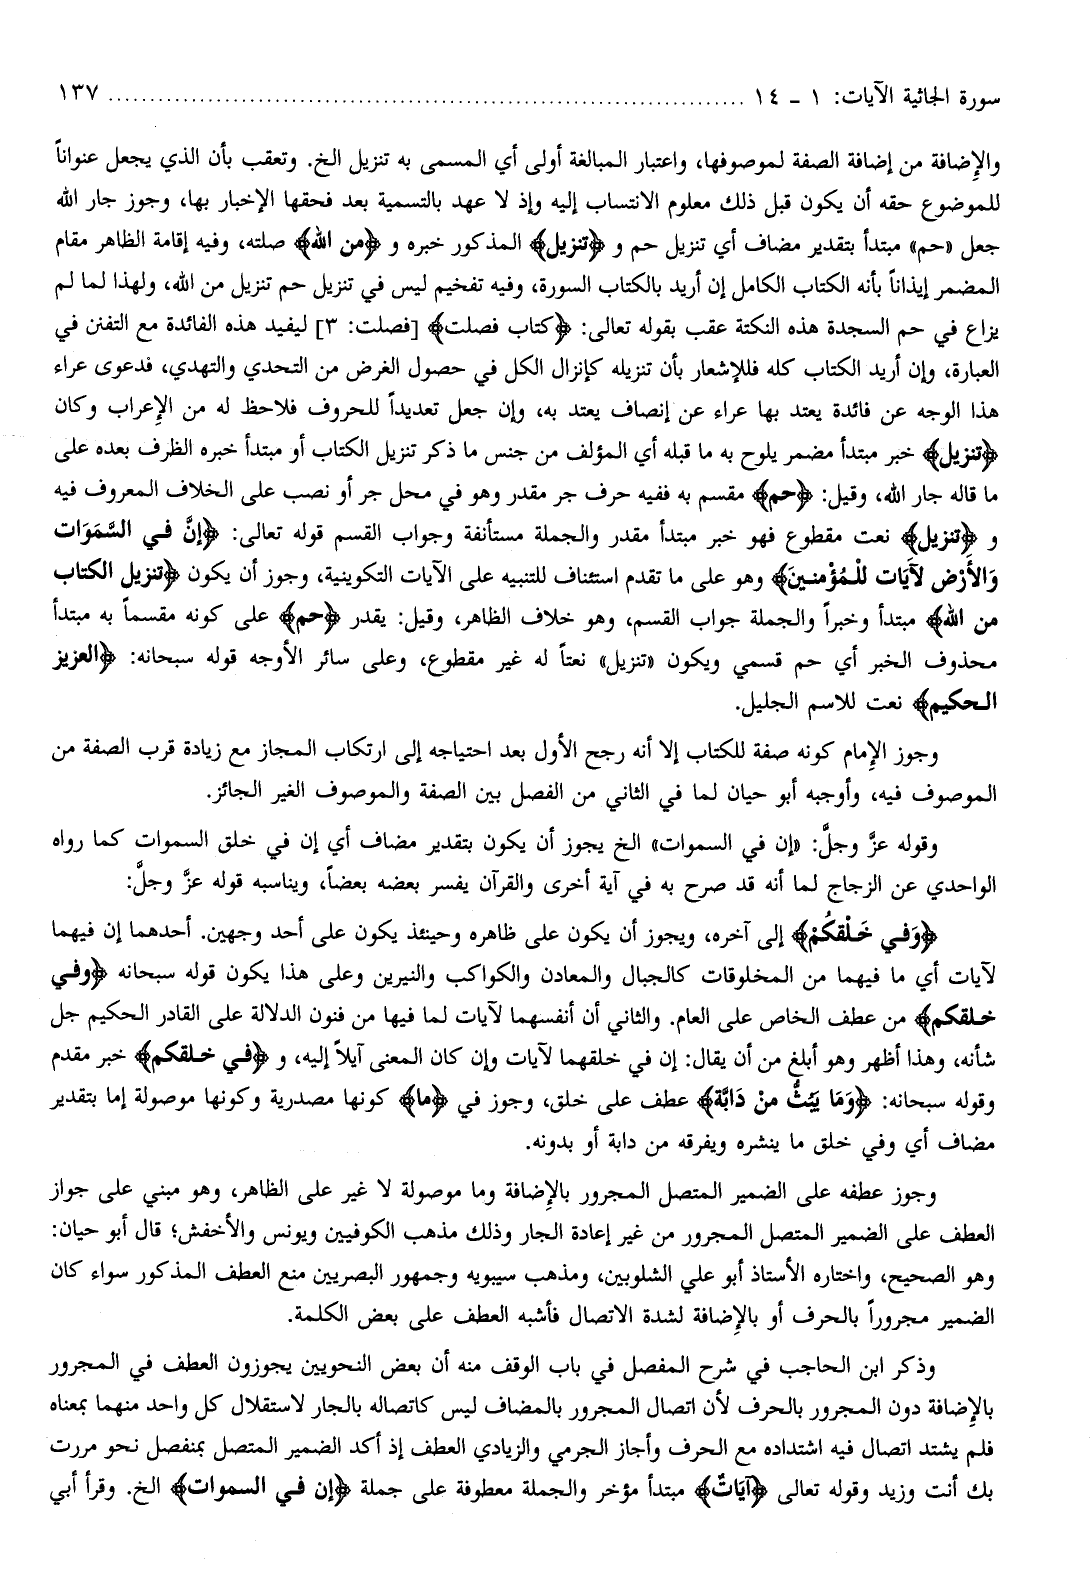 سورة الجاثية الآيات: ١ - ١٤ ........................................................................ ١٣٧
والإِضافة من إضافة الصفة لموصوفها، واعتبار المبالغة أولى أي المسمى به تنزيل الخ. وتعقب بأن الذي يجعل عنواناً
للموضوع حقه أن يكون قبل ذلك معلوم الانتساب إليه وإذ لا عهد بالتسمية بعد فحقها الإخبار بها، وجوز جار الله
جعل «حم» مبتدأ بتقدير مضاف أي تنزيل حم و ﴿تنزيل﴾ المذكور خبره و ﴿من الله﴾ صلته، وفيه إقامة الظاهر مقام
المضمر إيذاناً بأنه الكتاب الكامل إن أريد بالكتاب السورة، وفيه تفخيم ليس في تنزيل حم تنزيل من الله، ولهذا لما لم
يزاع في حم السجدة هذه النكتة عقب بقوله تعالى: ﴿كتاب فصلت﴾ [فصلت: ٣] ليفيد هذه الفائدة مع التفنن في
العبارة، وإن أريد الكتاب كله فللإشعار بأن تنزيله كإنزال الكل في حصول الغرض من التحدي والتهدي، فدعوى عراء
هذا الوجه عن فائدة يعتد بها عراء عن إنصاف يعتد به، وإن جعل تعديداً للحروف فلاحظ له من الإعراب وكان
﴿تنزيل﴾ خبر مبتدأ مضمر يلوح به ما قبله أي المؤلف من جنس ما ذكر تنزيل الكتاب أو مبتدأ خبره الظرف بعده على
ما قاله جار الله، وقيل: ﴿حم﴾ مقسم به ففيه حرف جر مقدر وهو في محل جر أو نصب على الخلاف المعروف فيه
و ﴿تنزيل﴾ نعت مقطوع فهو خبر مبتدأ مقدر والجملة مستأنفة وجواب القسم قوله تعالى: ﴿إنَّ في السَّمَوَات
وَالأَرْض لآيَات للْمُؤْمنينَ﴾ وهو على ما تقدم استئناف للتنبيه على الآيات التكوينية، وجوز أن يكون ﴿تنزيل الكتاب
من الله﴾ مبتدأ وخبراً والجملة جواب القسم، وهو خلاف الظاهر، وقيل: يقدر ﴿حم﴾ على كونه مقسماً به مبتدأ
محذوف الخبر أي حم قسمي ويكون «تنزيل» نعتاً له غير مقطوع، وعلى سائر الأوجه قوله سبحانه: ﴿العزيز
الحكيم﴾ نعت للاسم الجليل.
وجوز الإِمام كونه صفة للكتاب إلا أنه رجح الأول بعد احتياجه إلى ارتكاب المجاز مع زيادة قرب الصفة من
الموصوف فيه، وأوجبه أبو حيان لما في الثاني من الفصل بين الصفة والموصوف الغير الجائز.
وقوله عزَّ وجلَّ: «إن في السموات» الخ يجوز أن يكون بتقدير مضاف أي إن في خلق السموات كما رواه
الواحدي عن الزجاج لما أنه قد صرح به في آية أخرى والقرآن يفسر بعضه بعضاً، ويناسبه قوله عزَّ وجلَّ:
﴿وَفي خَلْقكُمْ﴾ إلى آخره، ويجوز أن يكون على ظاهره وحينئذ يكون على أحد وجهين. أحدهما إن فيهما
لآيات أي ما فيهما من المخلوقات كالجبال والمعادن والكواكب والنيرين وعلى هذا يكون قوله سبحانه ﴿وفي
خلقكم﴾ من عطف الخاص على العام. والثاني أن أنفسهما لآيات لما فيها من فنون الدلالة على القادر الحكيم جل
شأنه، وهذا أظهر وهو أبلغ من أن يقال: إن في خلقهما لآيات وإن كان المعنى آيلاً إليه، و ﴿في خلقكم﴾ خبر مقدم
وقوله سبحانه: ﴿وَمَا يَبُثُّ منْ دَابَّة﴾ عطف على خلق، وجوز في ﴿ما﴾ كونها مصدرية وكونها موصولة إما بتقدير
مضاف أي وفي خلق ما ينشره ويفرقه من دابة أو بدونه.
وجوز عطفه على الضمير المتصل المجرور بالإِضافة وما موصولة لا غير على الظاهر، وهو مبني على جواز
العطف على الضمير المتصل المجرور من غير إعادة الجار وذلك مذهب الكوفيين ويونس والأخفش؛ قال أبو حيان:
وهو الصحيح، واختاره الأستاذ أبو علي الشلوبين، ومذهب سيبويه وجمهور البصريين منع العطف المذكور سواء كان
الضمير مجروراً بالحرف أو بالإِضافة لشدة الاتصال فأشبه العطف على بعض الكلمة.
وذكر ابن الحاجب في شرح المفصل في باب الوقف منه أن بعض النحويين يجوزون العطف في المجرور
بالإِضافة دون المجرور بالحرف لأن اتصال المجرور بالمضاف ليس كاتصاله بالجار لاستقلال كل واحد منهما بمعناه
فلم يشتد اتصال فيه اشتداده مع الحرف وأجاز الجرمي والزيادي العطف إذ أكد الضمير المتصل بمنفصل نحو مررت
بك أنت وزيد وقوله تعالى ﴿آيَاتٌ﴾ مبتدأ مؤخر والجملة معطوفة على جملة ﴿إن في السموات﴾ الخ. وقرأ أبي